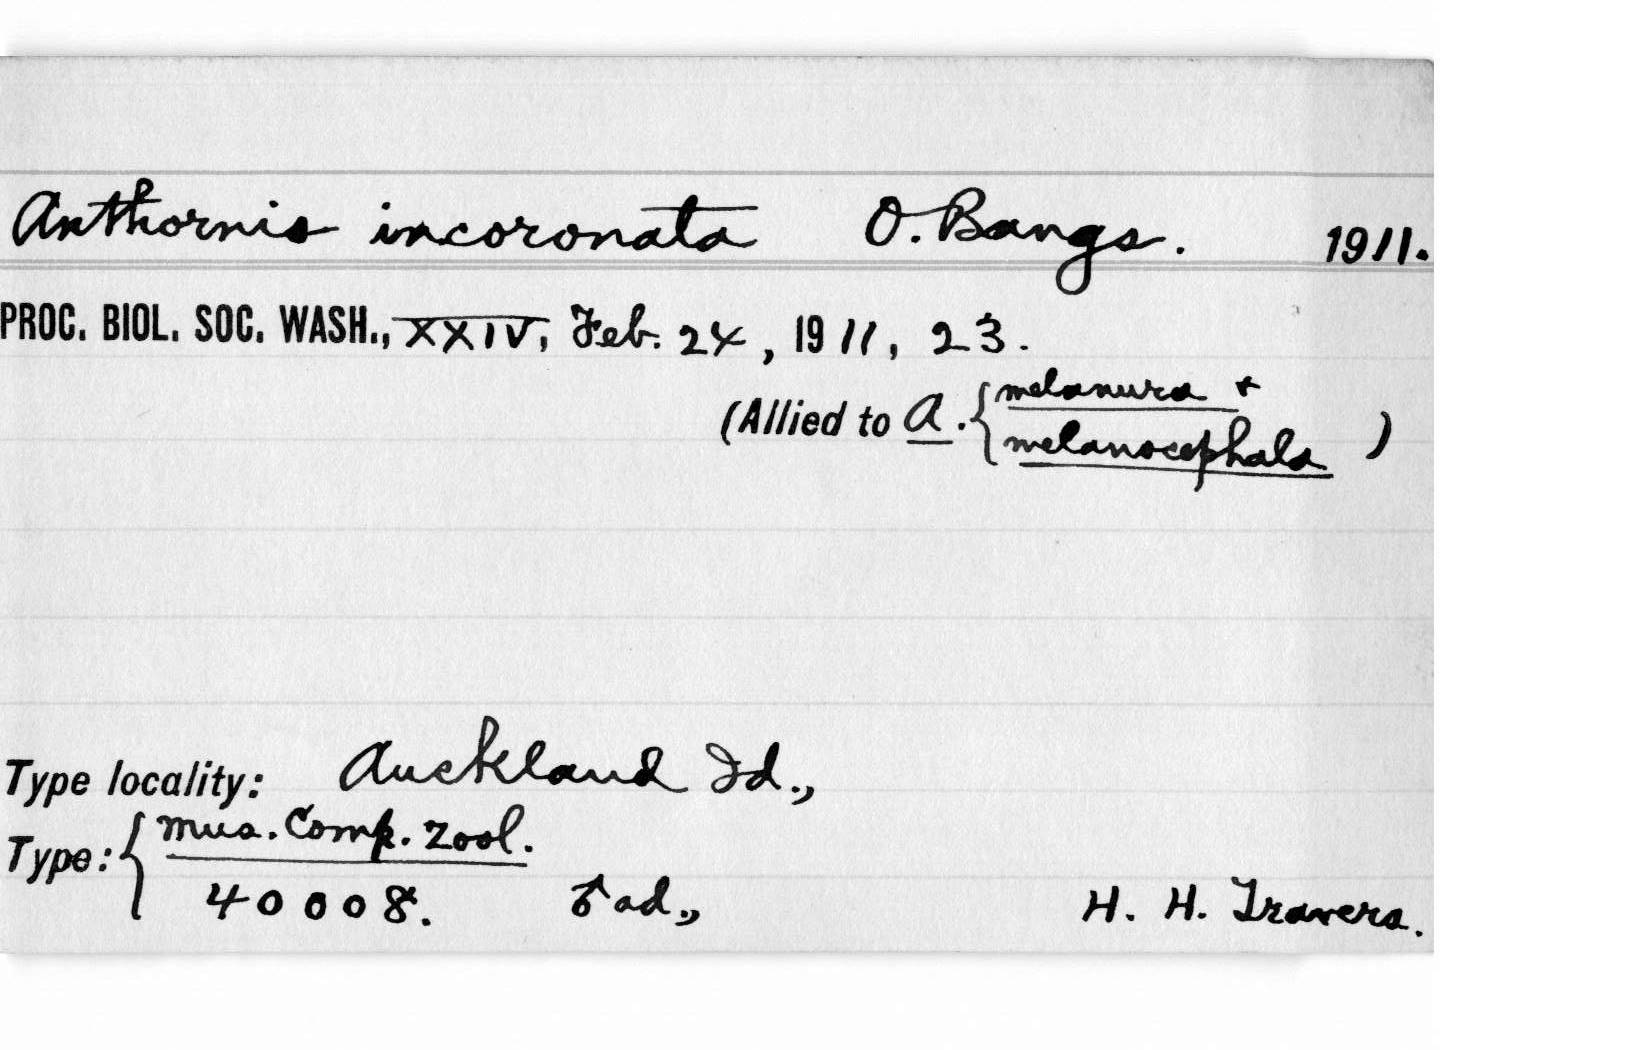 Anthornis incoronata O. Bangs. 1911.
PROC. BIOL. SOC. WASH., XXIV, Feb. 24, 1911, 23.
(Allied to A. { melanura +
melanocephala )
Type locality: Auckland Id.,
Type: { Mus. Comp. Zool.
40008. ♂ ad., H. H. Travers.